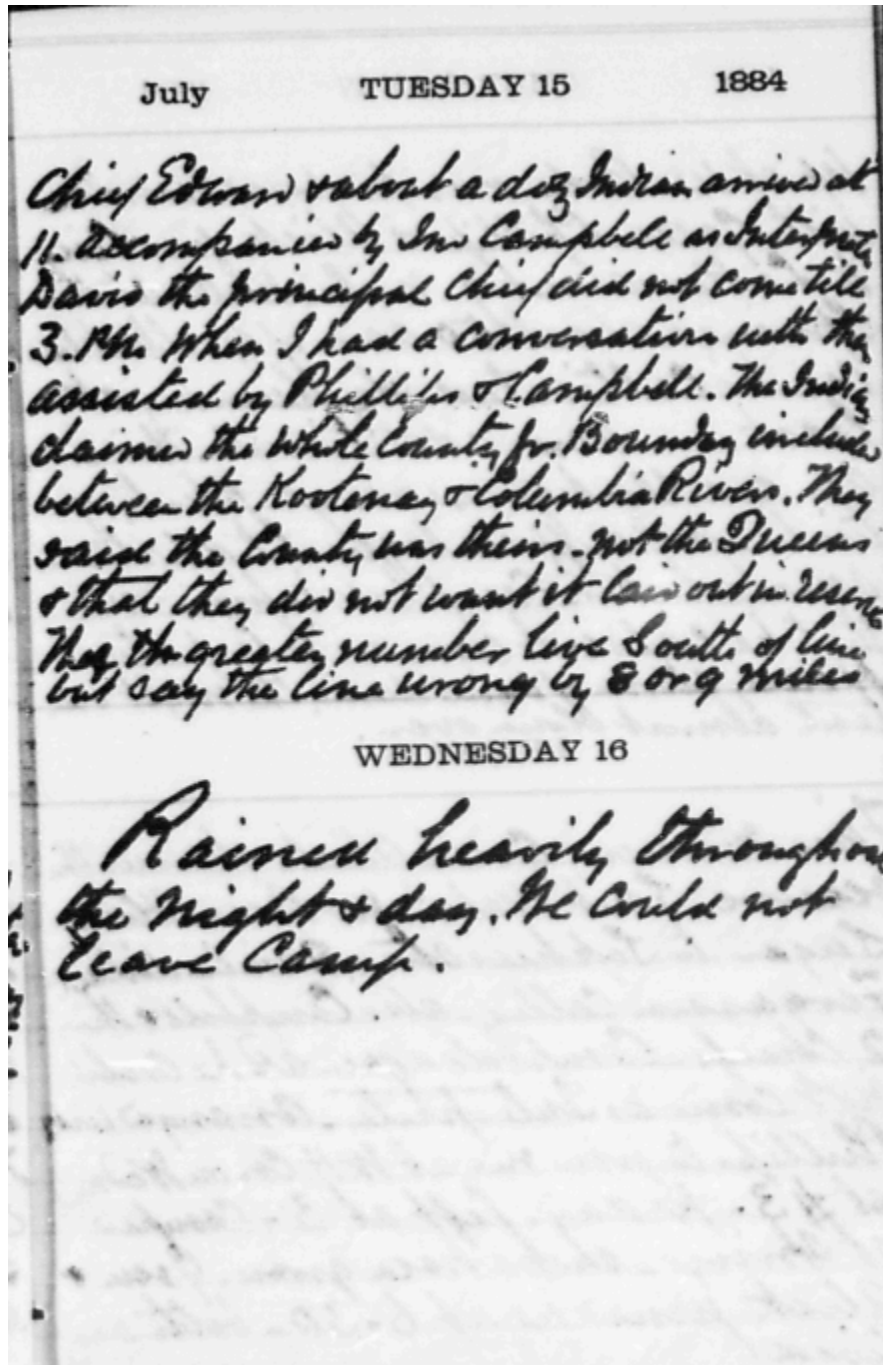 July TUESDAY 15 1884
Chief Edward & about a doz Indian arrive at
11. accompanied by Jno Campbell as Interpreter
David the principal Chief did not come till
3. PM. When I had a conversation with them
assisted by Phillips & Campbell. The Indians
claimed the whole County fr. Boundary included
between the Kootenay & Columbia Rivers. They
said the County was theirs. not the Queens
& that they did not want it laid out in reserve
They the greater number live South of line
but say the line wrong by 8 or 9 miles
WEDNESDAY 16
Rained heavily throughout
the night & day. We could not
leave Camp.